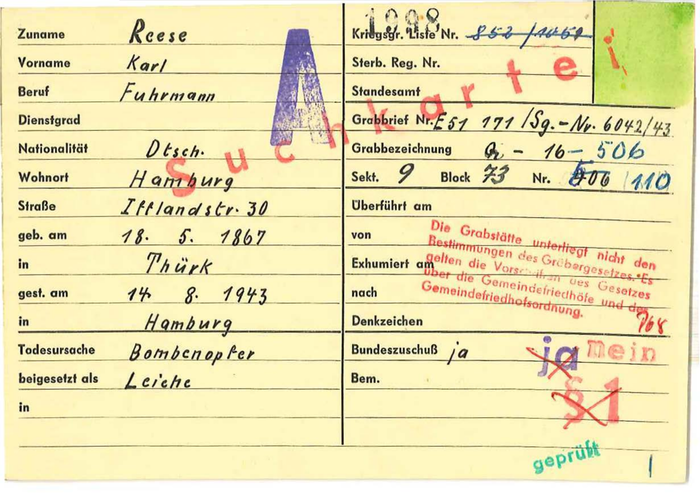 1998
Zuname Reese
Vorname Karl
Beruf Fuhrmann
Dienstgrad
Nationalität Dtsch.
Wohnort Hamburg
Straße Ifflandstr. 30
geb. am 18. 5. 1867
in Thürk
gest. am 14. 8. 1943
in Hamburg
Todesursache Bombenopfer
beigesetzt als Leiche
in
A
Suchkartei
Kriegsgr. Liste Nr. 852/1050
Sterb. Reg. Nr.
Standesamt
Grabbrief Nr. E51 171/Sg.-Nr. 6042/43
Grabbezeichnung - 16 - 506
Sekt. 9 Block 73 Nr. 110
Überführt am
von
Exhumiert am
nach
Denkzeichen
Die Grabstätte unterliegt nicht den
Bestimmungen des Gräbergesetzes. Es
gelten die des Gesetzes
über die Gemeindefriedhöfe und der
Gemeindefriedhofsordnung.
Bundeszuschuß ja ja nein
Bem. § 1
geprüft